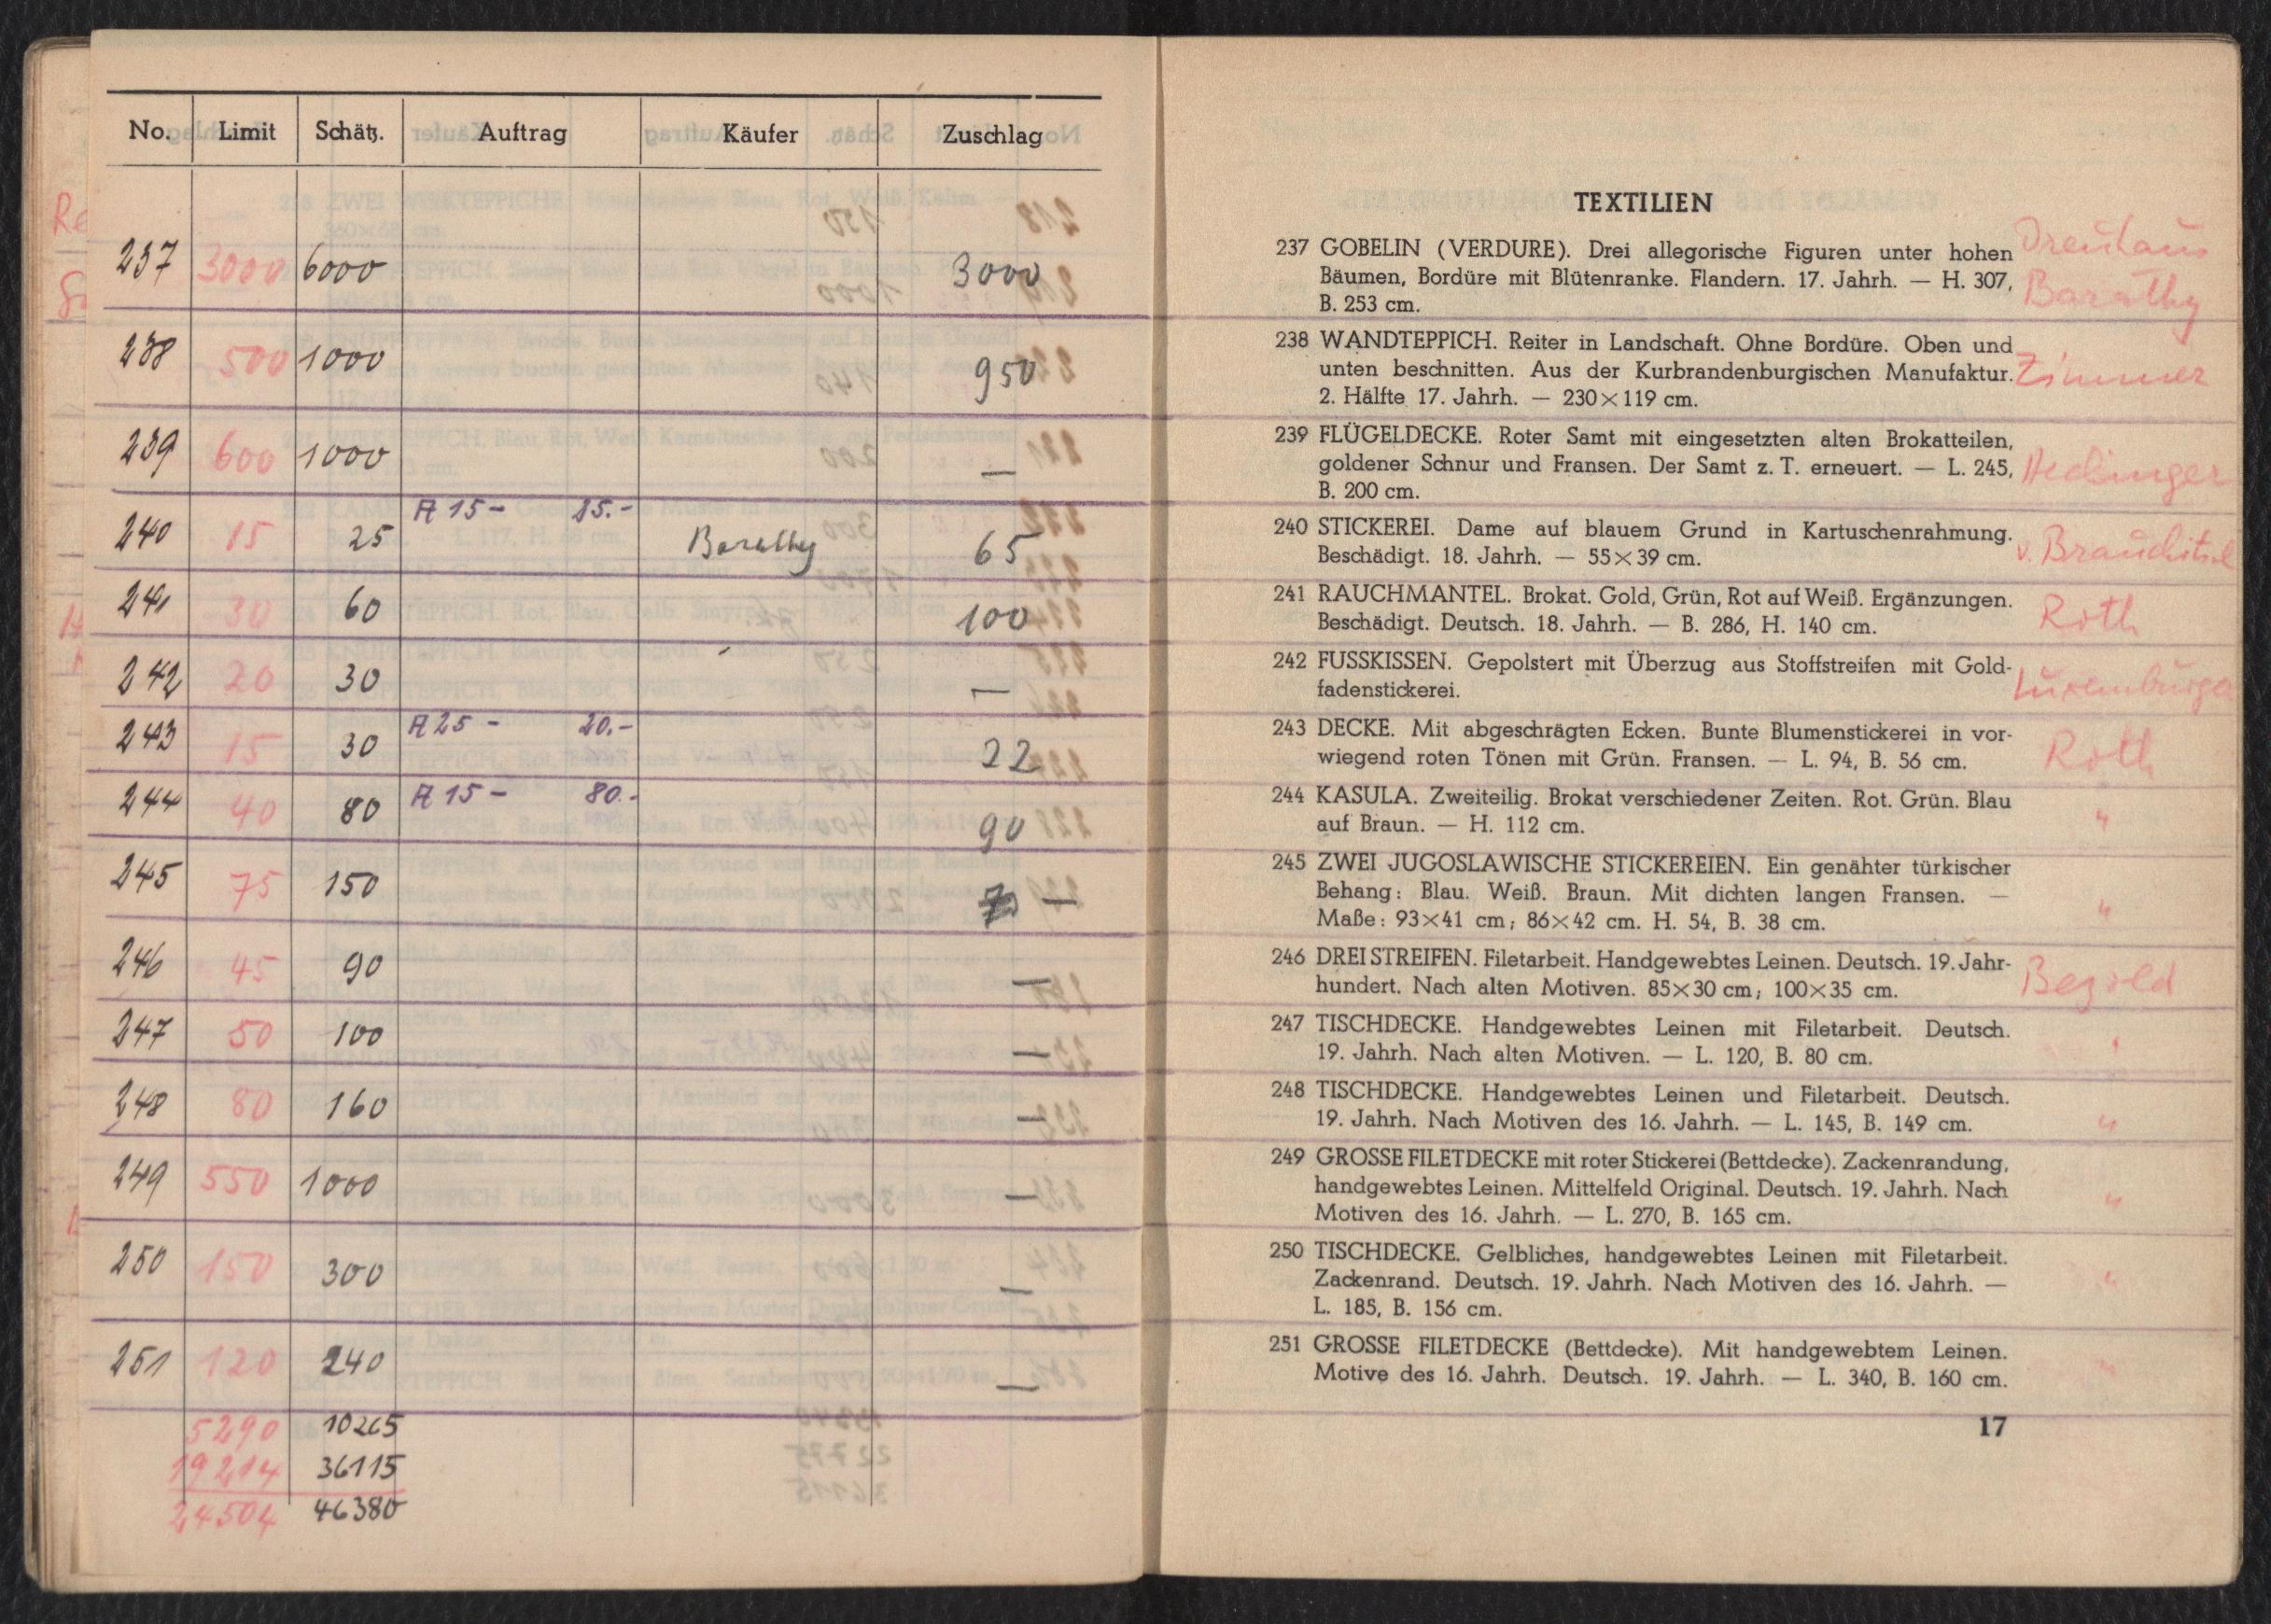 No. Limit Schätz. Auftrag Käufer Zuschlag
237 3000 6000 3000
238 500 1000 950
239 600 1000 —
A 15 - 15.-
240 15 25 Barathy 65
241 30 60 100
242 20 30 —
A 25 - 20.-
243 15 30 22
A 15 - 80.-
244 40 80 90
245 75 150 —
246 45 90 —
247 50 100 —
248 80 160 —
249 550 1000 —
250 150 300 —
251 120 240 —
5290 10265
19214 36115
24504 46380
TEXTILIEN
237 GOBELIN (VERDURE). Drei allegorische Figuren unter hohen
Bäumen, Bordüre mit Blütenranke. Flandern. 17. Jahrh. — H. 307,
B. 253 cm.
Dreuhaus
Barathy
238 WANDTEPPICH. Reiter in Landschaft. Ohne Bordüre. Oben und
unten beschnitten. Aus der Kurbrandenburgischen Manufaktur.
2. Hälfte 17. Jahrh. — 230×119 cm.
Zimmer
239 FLÜGELDECKE. Roter Samt mit eingesetzten alten Brokatteilen,
goldener Schnur und Fransen. Der Samt z. T. erneuert. — L. 245,
B. 200 cm.
240 STICKEREI. Dame auf blauem Grund in Kartuschenrahmung.
Beschädigt. 18. Jahrh. — 55×39 cm.
v. Brauchitsch
241 RAUCHMANTEL. Brokat. Gold, Grün, Rot auf Weiß. Ergänzungen.
Beschädigt. Deutsch. 18. Jahrh. — B. 286, H. 140 cm.
Roth
242 FUSSKISSEN. Gepolstert mit Überzug aus Stoffstreifen mit Gold-
fadenstickerei.
Luxemburger
243 DECKE. Mit abgeschrägten Ecken. Bunte Blumenstickerei in vor-
wiegend roten Tönen mit Grün. Fransen. — L. 94, B. 56 cm.
Roth
244 KASULA. Zweiteilig. Brokat verschiedener Zeiten. Rot. Grün. Blau
auf Braun. — H. 112 cm.
"
245 ZWEI JUGOSLAWISCHE STICKEREIEN. Ein genähter türkischer
Behang: Blau. Weiß. Braun. Mit dichten langen Fransen. —
Maße: 93×41 cm; 86×42 cm. H. 54, B. 38 cm.
"
246 DREI STREIFEN. Filetarbeit. Handgewebtes Leinen. Deutsch. 19. Jahr-
hundert. Nach alten Motiven. 85×30 cm; 100×35 cm.
Bezold
247 TISCHDECKE. Handgewebtes Leinen mit Filetarbeit. Deutsch.
19. Jahrh. Nach alten Motiven. — L. 120, B. 80 cm.
"
248 TISCHDECKE. Handgewebtes Leinen und Filetarbeit. Deutsch.
19. Jahrh. Nach Motiven des 16. Jahrh. — L. 145, B. 149 cm.
"
249 GROSSE FILETDECKE mit roter Stickerei (Bettdecke). Zackenrandung,
handgewebtes Leinen. Mittelfeld Original. Deutsch. 19. Jahrh. Nach
Motiven des 16. Jahrh. — L. 270, B. 165 cm.
"
250 TISCHDECKE. Gelbliches, handgewebtes Leinen mit Filetarbeit.
Zackenrand. Deutsch. 19. Jahrh. Nach Motiven des 16. Jahrh. —
L. 185, B. 156 cm.
"
251 GROSSE FILETDECKE (Bettdecke). Mit handgewebtem Leinen.
Motive des 16. Jahrh. Deutsch. 19. Jahrh. — L. 340, B. 160 cm.
"
17